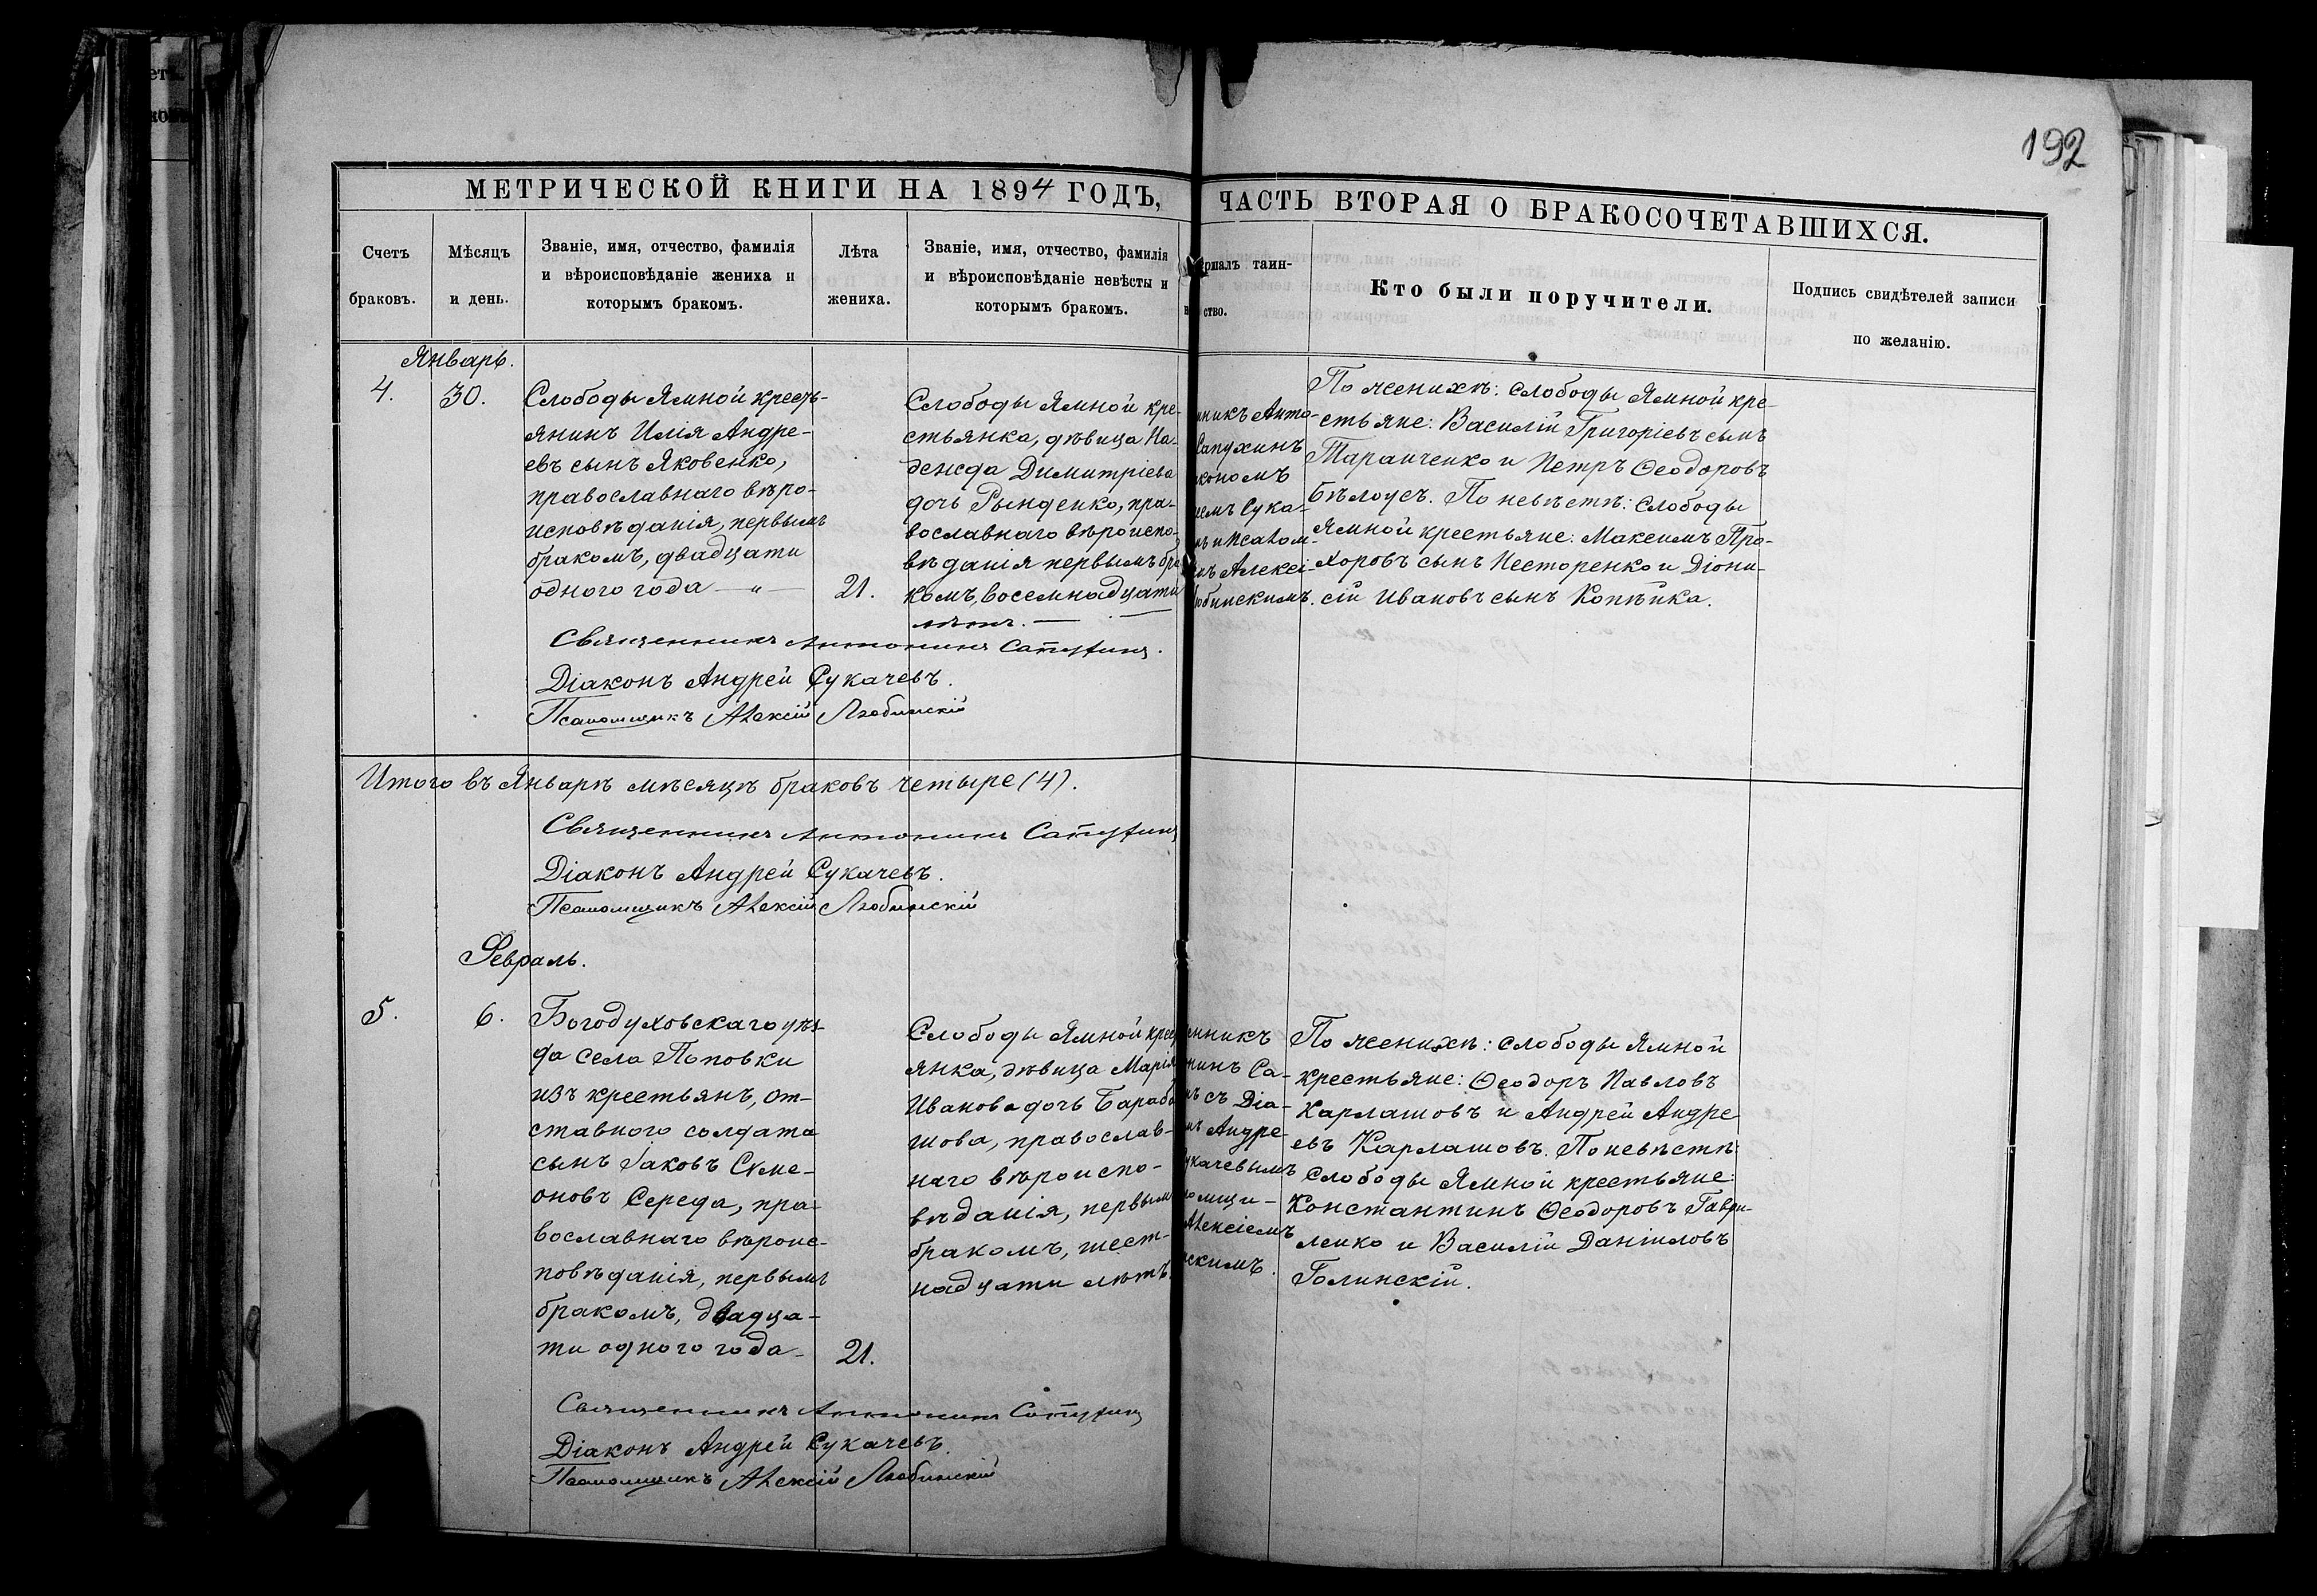 192
МЕТРИЧЕСКОЙ КНИГИ НА 1894 ГОДЪ,
ЧАСТЬ ВТОРАЯ О БРАКОСОЧЕТАВШИХСЯ.
Счетъ
браковъ.
Мѣсяцъ
и день.
Званіе, имя, отчество, фамилія
и вѣроисповѣданіе жениха и
которымъ бракомъ.
Лѣта
жениха.
Званіе, имя, отчество, фамилія
и вѣроисповѣданіе невѣсты и
которымъ бракомъ.
ершалъ таин-
ство.
Кто были поручители.
Подпись свидѣтелей записи
по желанію.
Январь.
4.
30.
Слободы Ямной кресть-
янинъ Илія Андре-
евъ сынъ Яковенко,
православнаго вѣро-
исповѣданія, первымъ
бракомъ, двадцати
одного года — „ —
21.
Слободы Ямной кре-
стьянка, дѣвица На-
дежда Димитріева
дочь Рынденко, пра-
вославнаго вѣроиспо-
вѣданія первымъ бра
комъ, восемнадцати
лѣтъ. —
нникъ Анто-
Сапухинъ
кономъ
еемъ Сука-
ъ и псалом-
мъ Алексі-
юбинскимъ.
По женихѣ: слободы Ямной кре-
стьяне: Василій Григоріевъ сынъ
Таранченко и Петръ Ѳеодоровъ
Бѣлоусъ. По невѣстѣ: слободы
Ямной крестьяне: Максимъ Про-
хоровъ сынъ Несторенко и Діони-
сій Ивановъ сынъ Копѣйка.
Священникъ Антонинъ Сапухинъ.
Діаконъ Андрей Сукачевъ.
Псаломщикъ Алексій Любинскій
Итого въ Январѣ мѣсяцѣ браковъ четыре (4).
Священникъ Антонинъ Сапухинъ
Діаконъ Андрей Сукачевъ.
Псаломщикъ Алексій Любинскій
Февраль.
5.
6.
Богодуховскаго уѣз-
да села Поповки
изъ крестьянъ, от-
ставного солдата
сынъ Іаковъ Сѵме-
оновъ Середа, пра-
вославнаго вѣроис-
повѣданія, первымъ
бракомъ, двадца-
ти одного года —
21.
Слободы Ямной крест
янка, дѣвица Марія
Иванова дочь Бараба
шова, православ-
наго вѣроиспо-
вѣданія, первым
бракомъ, шест-
надцати лѣтъ.
енникъ
нинъ Са-
ъ съ Діа-
мъ Андре-
укачевымъ
ломщи-
Алексіемъ
нскимъ.
По женихѣ: слободы Ямной
крестьяне: Ѳеодоръ Павловъ
Карлашовъ и Андрей Андре
евъ Карлашовъ. По невѣстѣ:
слободы Ямной крестьяне:
Константинъ Ѳеодоровъ Гаври-
ленко и Василій Даніиловъ
Голинскій.
Священникъ Антонинъ Сапухинъ
Діаконъ Андрей Сукачевъ.
Псаломщикъ Алексій Любинскій